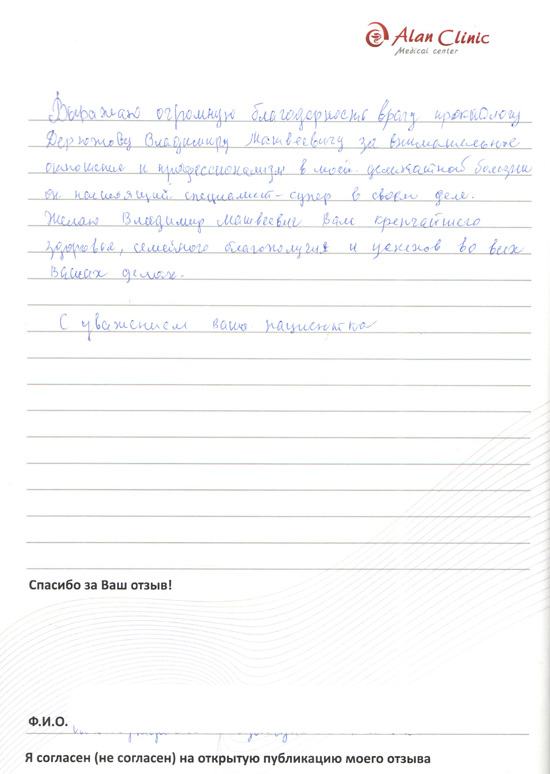 Alan Clinic
Medical center
Выражаю огромную благодарность врачу проктологу
Владимиру Матвеевичу за внимательное
отношение и профессионализм в моей деликатной болезни
он настоящий специалист - супер в своем деле.
Желаю Владимир Матвеевич Вам крепчайшего
здоровья, семейного благополучия и успехов во всех
Ваших делах.
С уважением ваша пациентка
Спасибо за Ваш отзыв!
Ф.И.О.
Я согласен (не согласен) на открытую публикацию моего отзыва